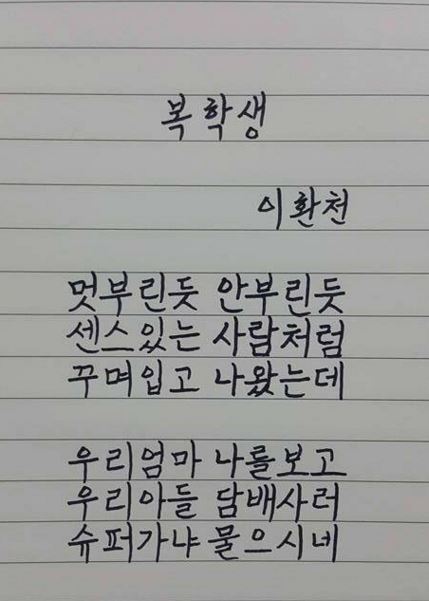 복학생
이환천
멋부린듯 안부린듯
센스있는 사람처럼
꾸며입고 나왔는데
우리엄마 나를보고
우리아들 담배사러
슈퍼가냐 물으시네